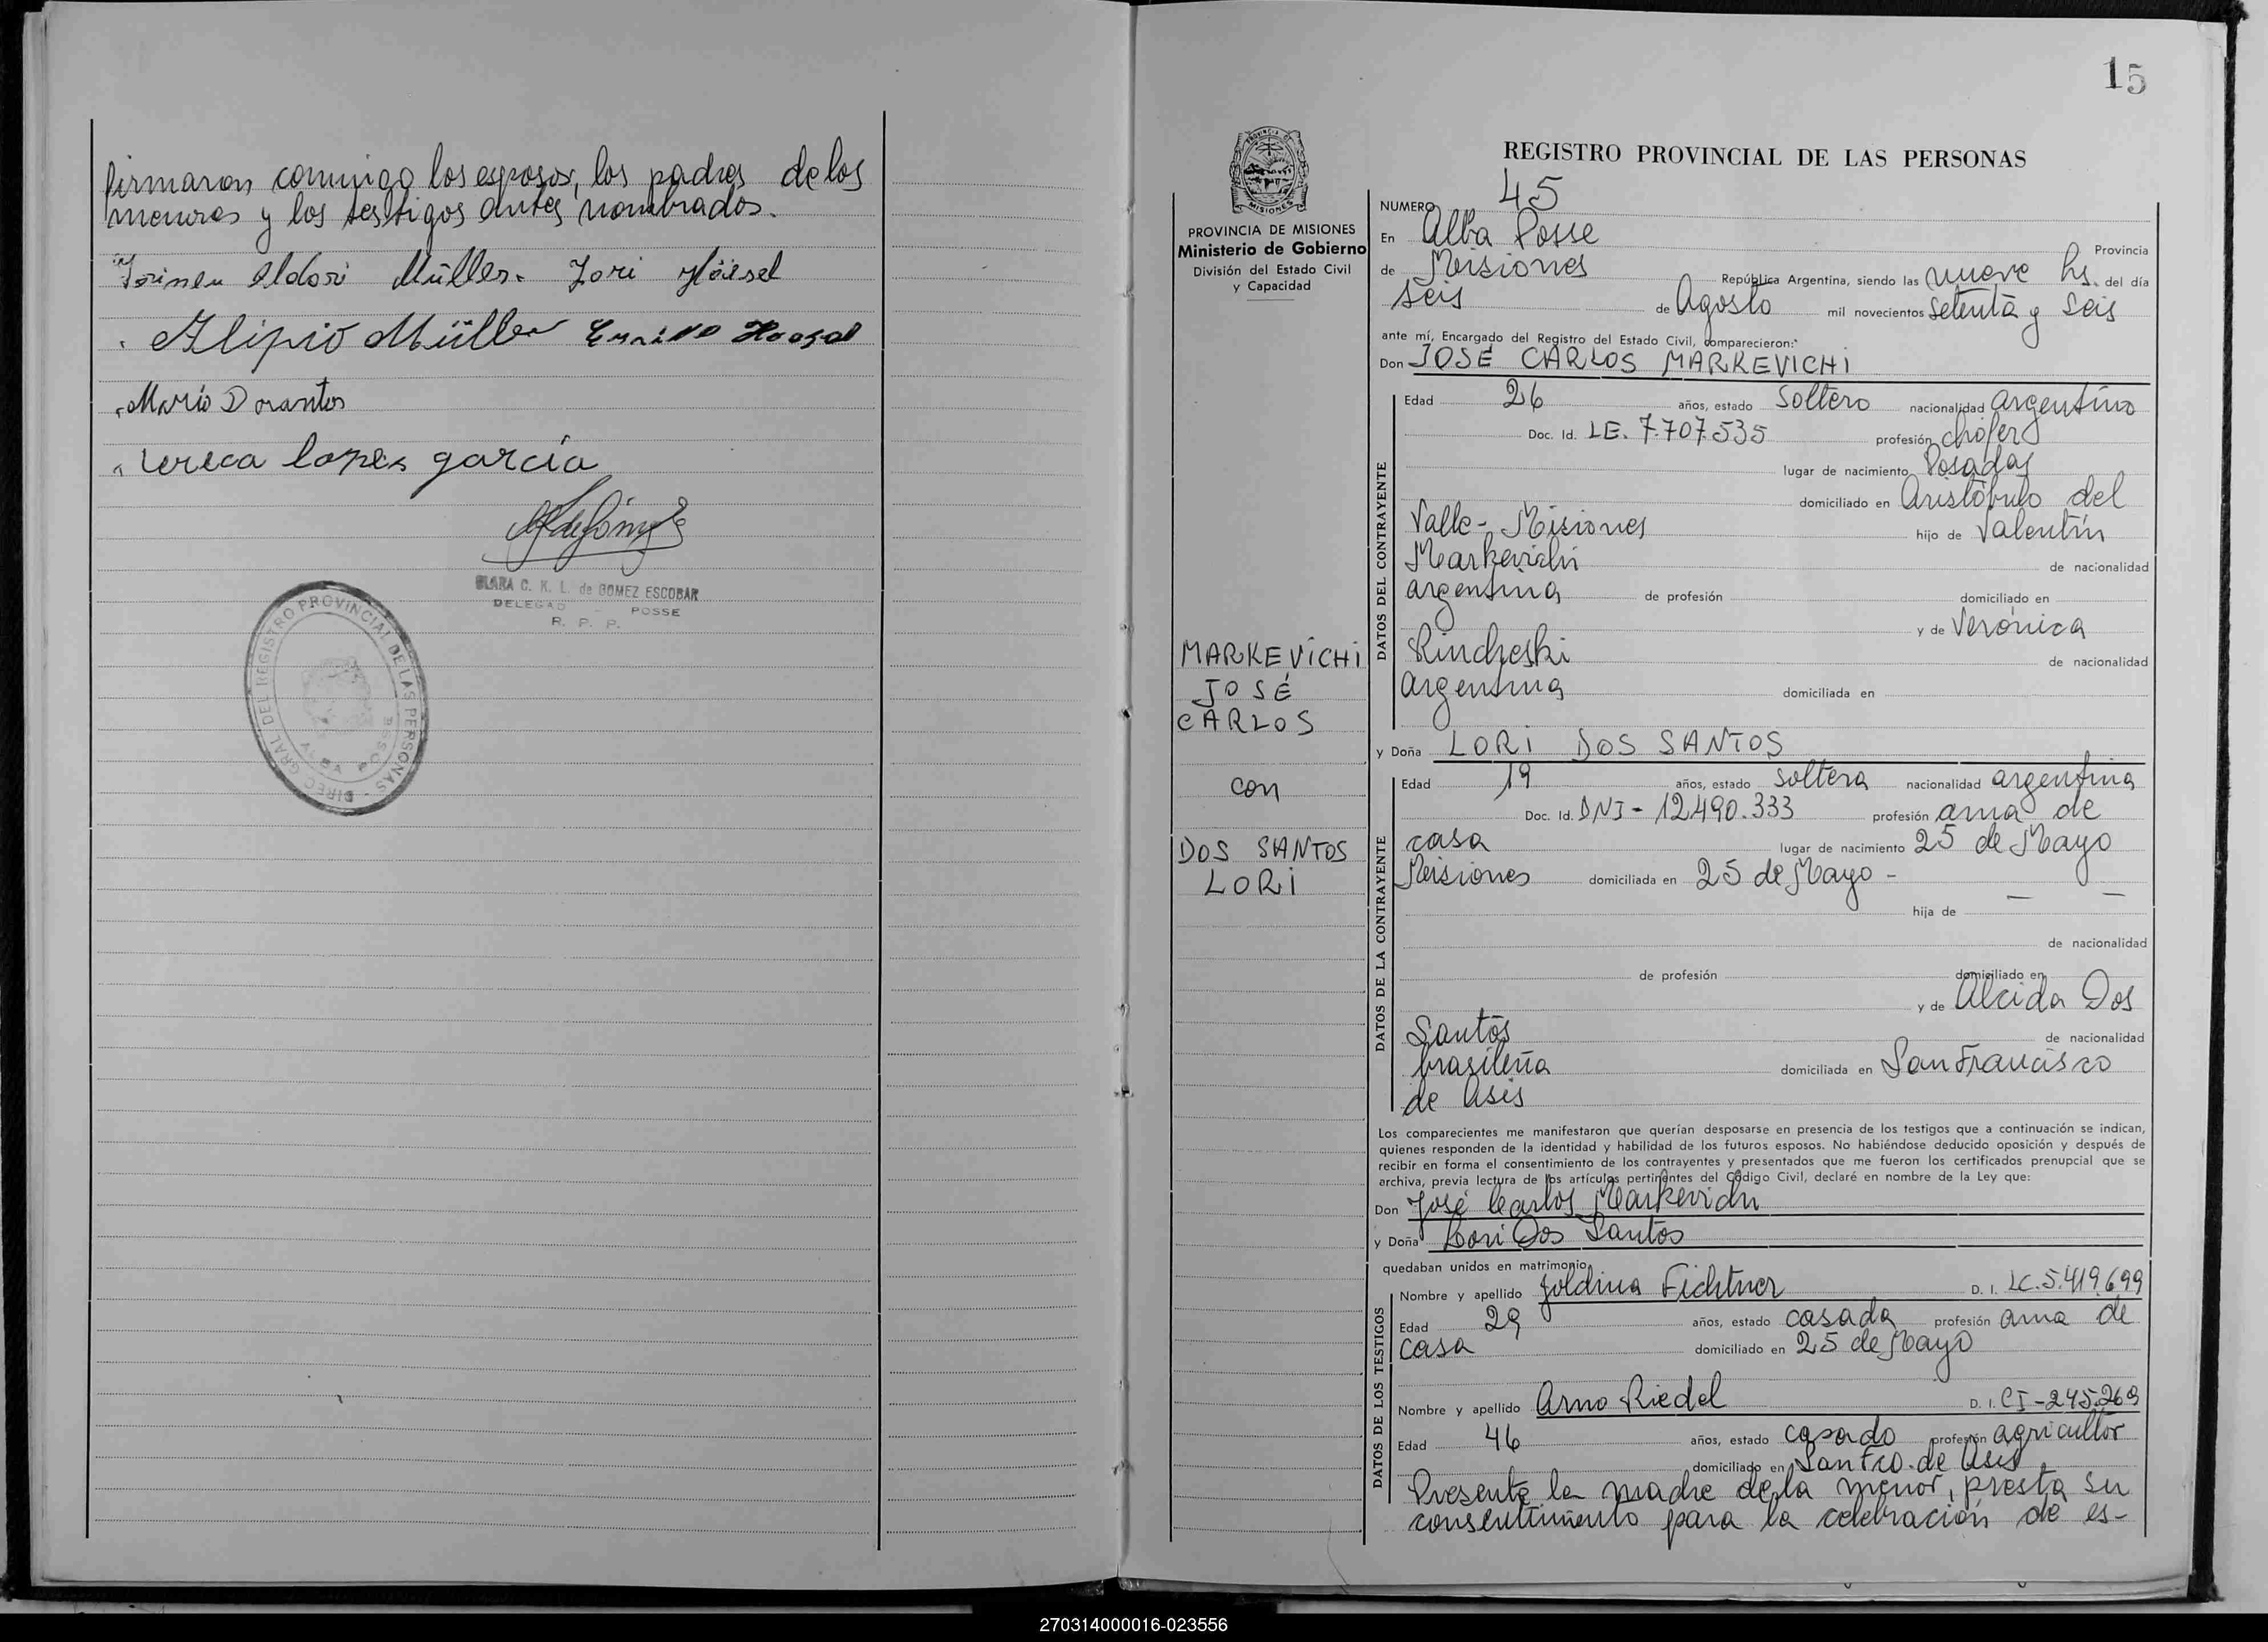 firmaron conmigo los esposos, los padres de los
menores y los testigos antes nombrados.
Aldori Müller. Lori Höesel
Alipio Müller
Mario Dorantos
Tereca lopes garcia
CLARA C. K. L. de GOMEZ ESCOBAR
DELEGAD POSSE
R. P. P.
DIREC. GRAL. DEL REGISTRO PROVINCIAL DE LAS PERSONAS -
ALBA POSSE
15
PROVINCIA DE
MISIONES
PROVINCIA DE MISIONES
Ministerio de Gobierno
División del Estado Civil
y Capacidad
MARKEVICHI
JOSÉ
CARLOS
con
DOS SANTOS
LORI
REGISTRO PROVINCIAL DE LAS PERSONAS
NUMERO 45
En Alba Posse Provincia
de Misiones República Argentina, siendo las nueve hs. del día
seis de Agosto mil novecientos setenta y seis
ante mí, Encargado del Registro del Estado Civil, comparecieron:
Don JOSÉ CARLOS MARKEVICHI
DATOS DEL CONTRAYENTE
Edad 26 años, estado soltero nacionalidad argentino
Doc. Id. LE. 7.707.535 profesión chofer
lugar de nacimiento Posadas
domiciliado en Aristóbulo del
Valle - Misiones hijo de Valentín
Markevichi de nacionalidad
argentina de profesión domiciliado en
y de Verónica
Rincheski de nacionalidad
argentina domiciliada en
y Doña LORI DOS SANTOS
DATOS DE LA CONTRAYENTE
Edad 19 años, estado soltera nacionalidad argentina
Doc. Id. DNI - 12.490.333 profesión ama de
casa lugar de nacimiento 25 de Mayo
Misiones domiciliada en 25 de Mayo -
hija de — —
de nacionalidad
de profesión domiciliado en
y de Alcida Dos
Santos de nacionalidad
brasileña domiciliada en San Francisco
de Asis
Los comparecientes me manifestaron que querían desposarse en presencia de los testigos que a continuación se indican,
quienes responden de la identidad y habilidad de los futuros esposos. No habiéndose deducido oposición y después de
recibir en forma el consentimiento de los contrayentes y presentados que me fueron los certificados prenupcial que se
archiva, previa lectura de los artículos pertinentes del Código Civil, declaré en nombre de la Ley que:
Don José Carlos Markevichi
y Doña Lori Dos Santos
quedaban unidos en matrimonio
DATOS DE LOS TESTIGOS
Nombre y apellido Joldina Fichtner D. I. LC. 5.419.699
Edad 29 años, estado casada profesión ama de
casa domiciliado en 25 de Mayo
Nombre y apellido Arno Riedel D. I. CI - 245.269
Edad 46 años, estado casado profesión agricultor
domiciliado en San Fco. de Asis
Presente la madre de la menor, presta su
consentimiento para la celebración de es-
270314000016-023556